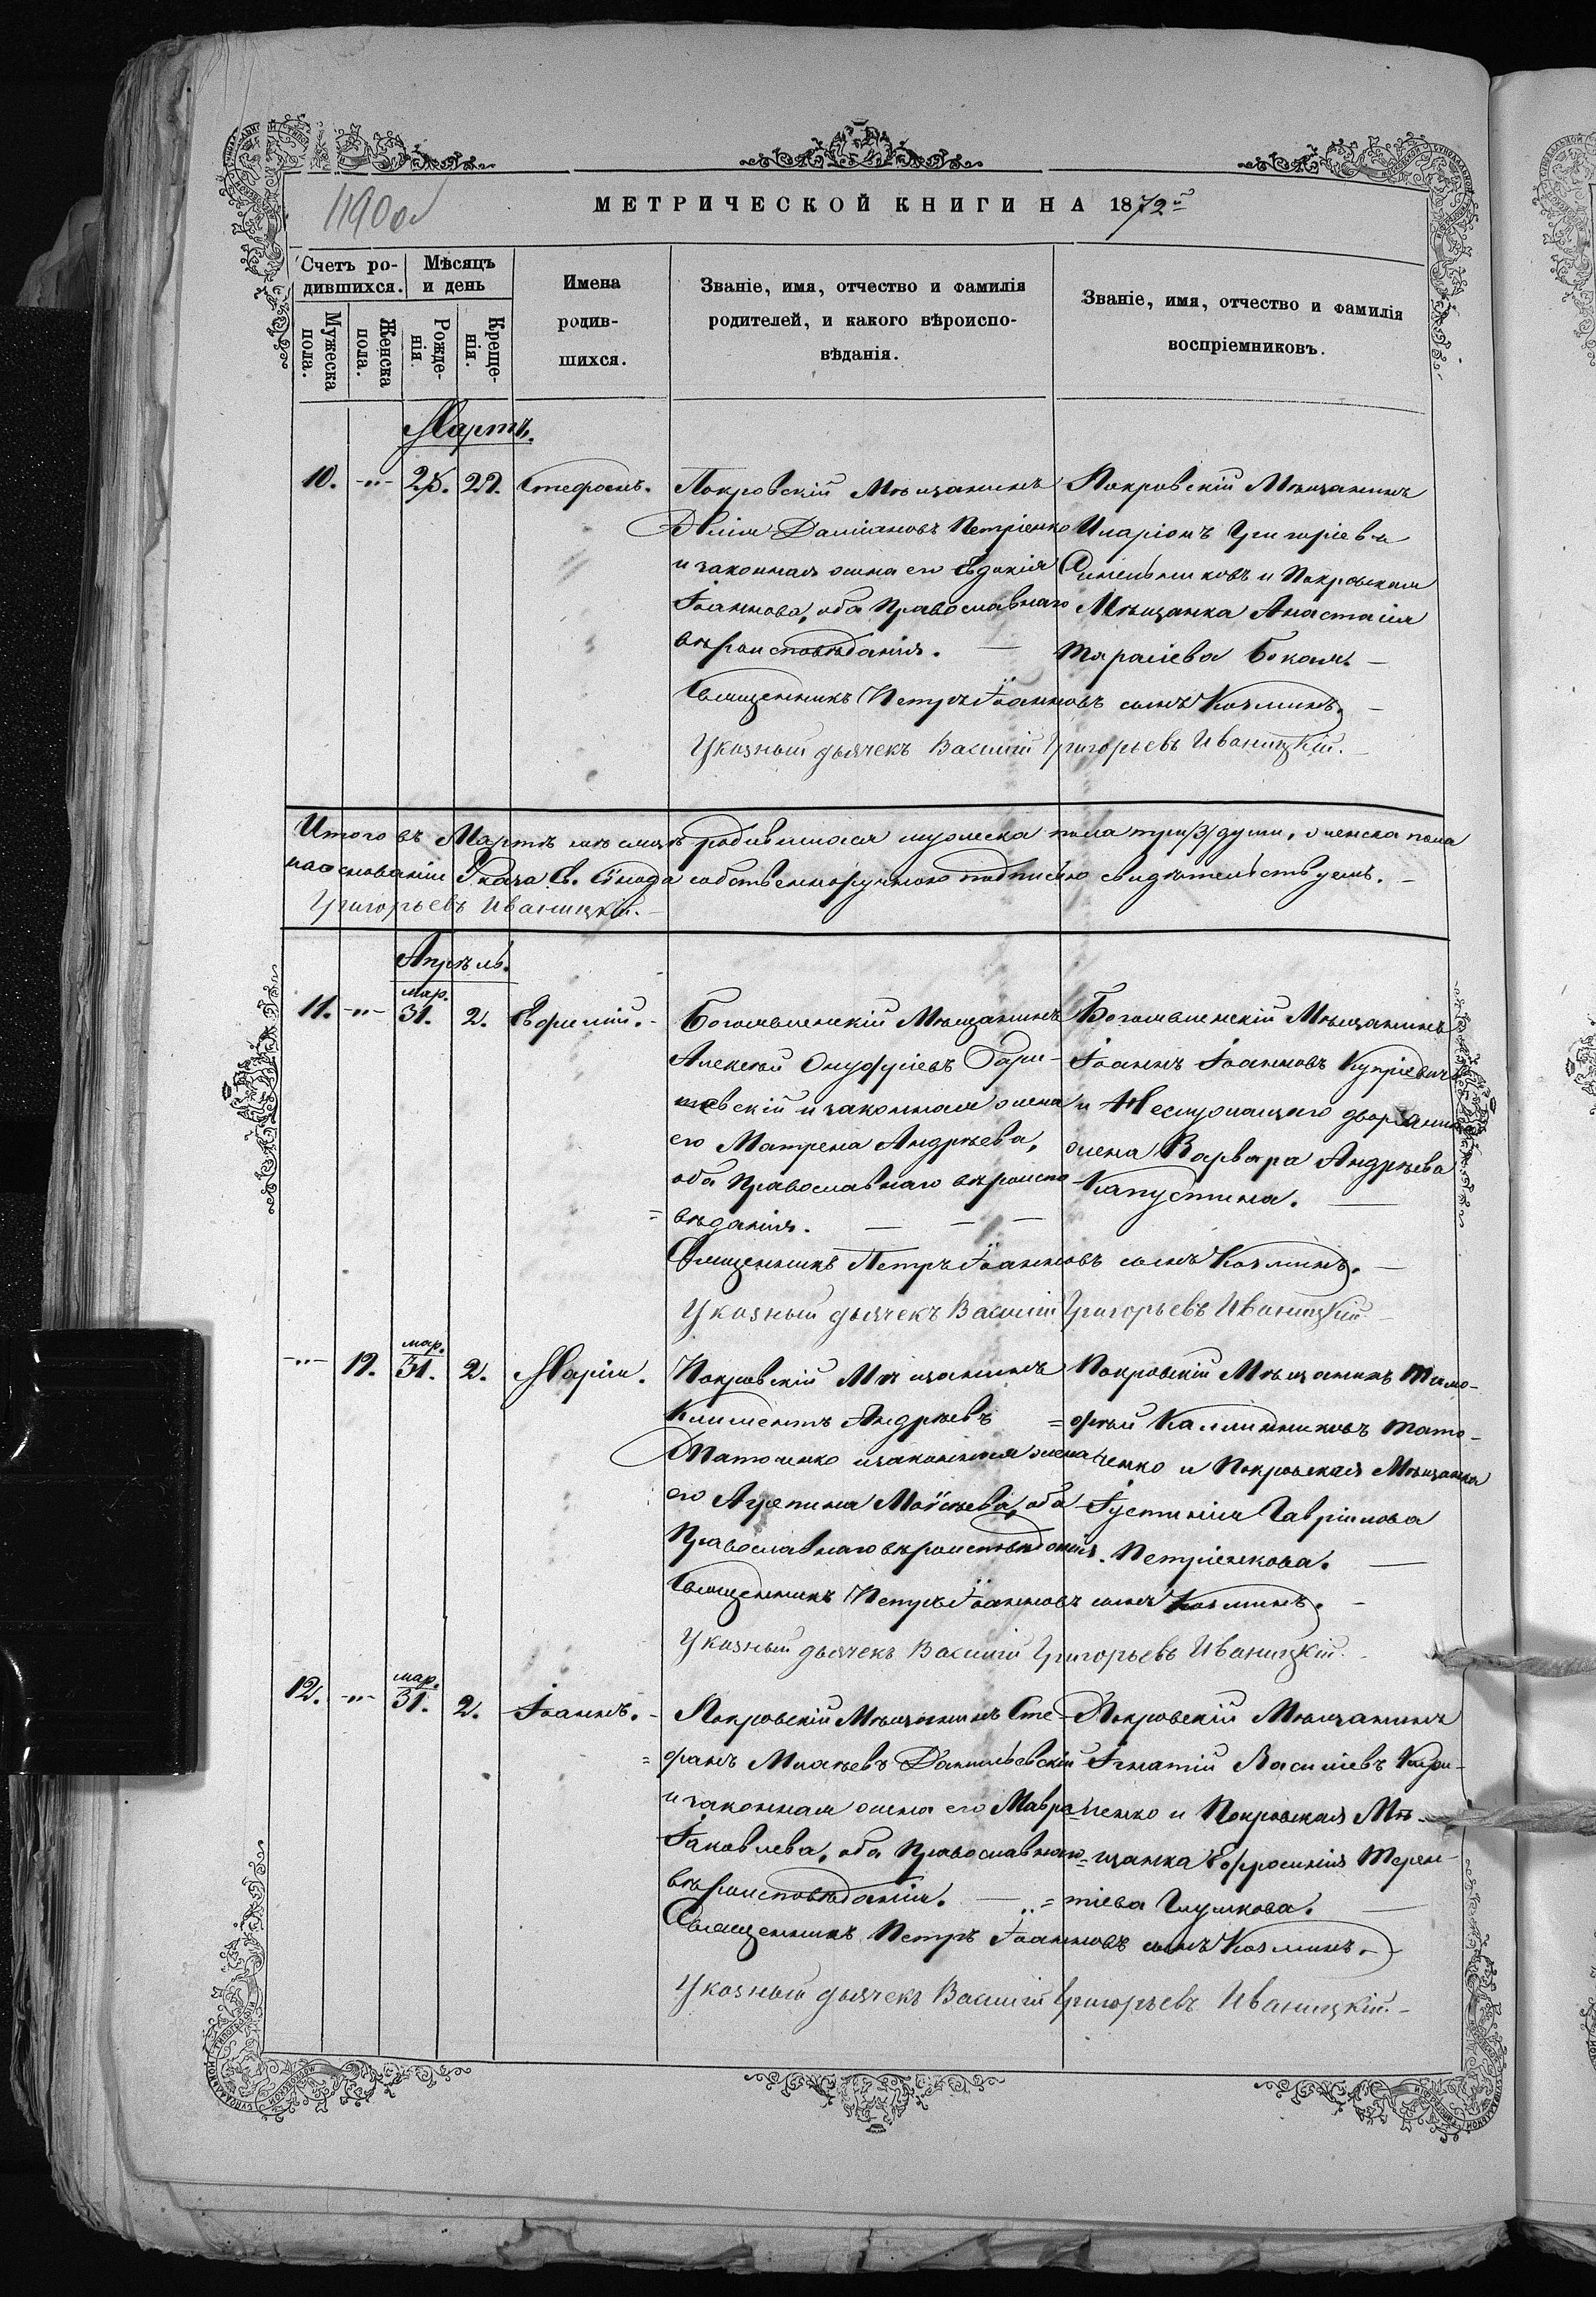 1190 об
МЕТРИЧЕСКОЙ КНИГИ НА 1872й
Счетъ ро-
дившихся.
Мѣсяцъ
и день
Мужеска
пола.
Женска
пола.
Рожде-
нія.
Креще-
нія.
Имена
родив-
шихся.
Званіе, имя, отчество и фамилія
родителей, и какого вѣроиспо-
вѣданія.
Званіе, имя, отчество и фамилія
воспріемниковъ.
Мартъ.
10. -"- 25. Стефанъ.
Покровскій Мѣщанинъ
Даміановъ Петріенко
и законная жена его Евдокія
Іоаннова, оба Православнаго
вѣроисповѣданія. —
Покровскій Мѣщанинъ
Иларіонъ Григоріевъ
Синельниковъ и Покровская
Мѣщанка Анастасія
Тарасіева —
Священникъ Петръ Іоанновъ сынъ Козминъ. —
Указный дьячекъ Василій Григорьевъ Иваницкій. —
Итого въ Мартѣ мѣсяцѣ родившихся мужеска пола три /3/ души, женска пола
на основаніи Указа Св. Сѵнода собственноручною подписью свидѣтельствуемъ. —
Григорьевъ Иваницкій. —
Апрѣль.
11. -"- мар. 31. 2. Евфимій. —
Богоявленскій Мѣщанинъ
Алексѣй Онуфріевъ
и законная жена
его Матрена Андреева,
оба Православнаго вѣроиспо-
=вѣданія. — — —
Богоявленскій Мѣщанинъ
Іоаннъ Іоанновъ Купріевичъ
и дворянина
жена Варвара Андреева
Капустина. —
Священникъ Петръ Іоанновъ сынъ Козминъ. —
Указный дьячекъ Василій Григорьевъ Иваницкій. —
-"- 12. мар. 31. 2. Марія.
Покровскій Мѣщанинъ
Климентъ Андреевъ
и законная жена
его Агрепина Моѵсеева, оба
Православнаго вѣроисповѣданія.
Покровскій Мѣщанинъ Тимо-
=фей Каллинниковъ Тато-
ченко и Покровская Мѣщанка
Іустинія Гавріилова
Петріенкова. —
Священникъ Петръ Іоанновъ сынъ Козминъ. —
Указный дьячекъ Василій Григорьевъ Иваницкій. —
12. -"- мар. 31. 2. Іоаннъ. —
Покровскій Мѣщанинъ Сте-
=фанъ Данильевскій
и законная жена его Мавра
Іаковлева, оба Православнаго
вѣроисповѣданія. —
Покровскій Мѣщанинъ
Игнатій Василіевъ Кири-
=ченко и Покровская Мѣ-
=щанка Ефросинія Терен-
=тіева Глушкова. —
Священникъ Петръ Іоанновъ сынъ Козминъ. —
Указный дьячекъ Василій Григорьевъ Иваницкій. —